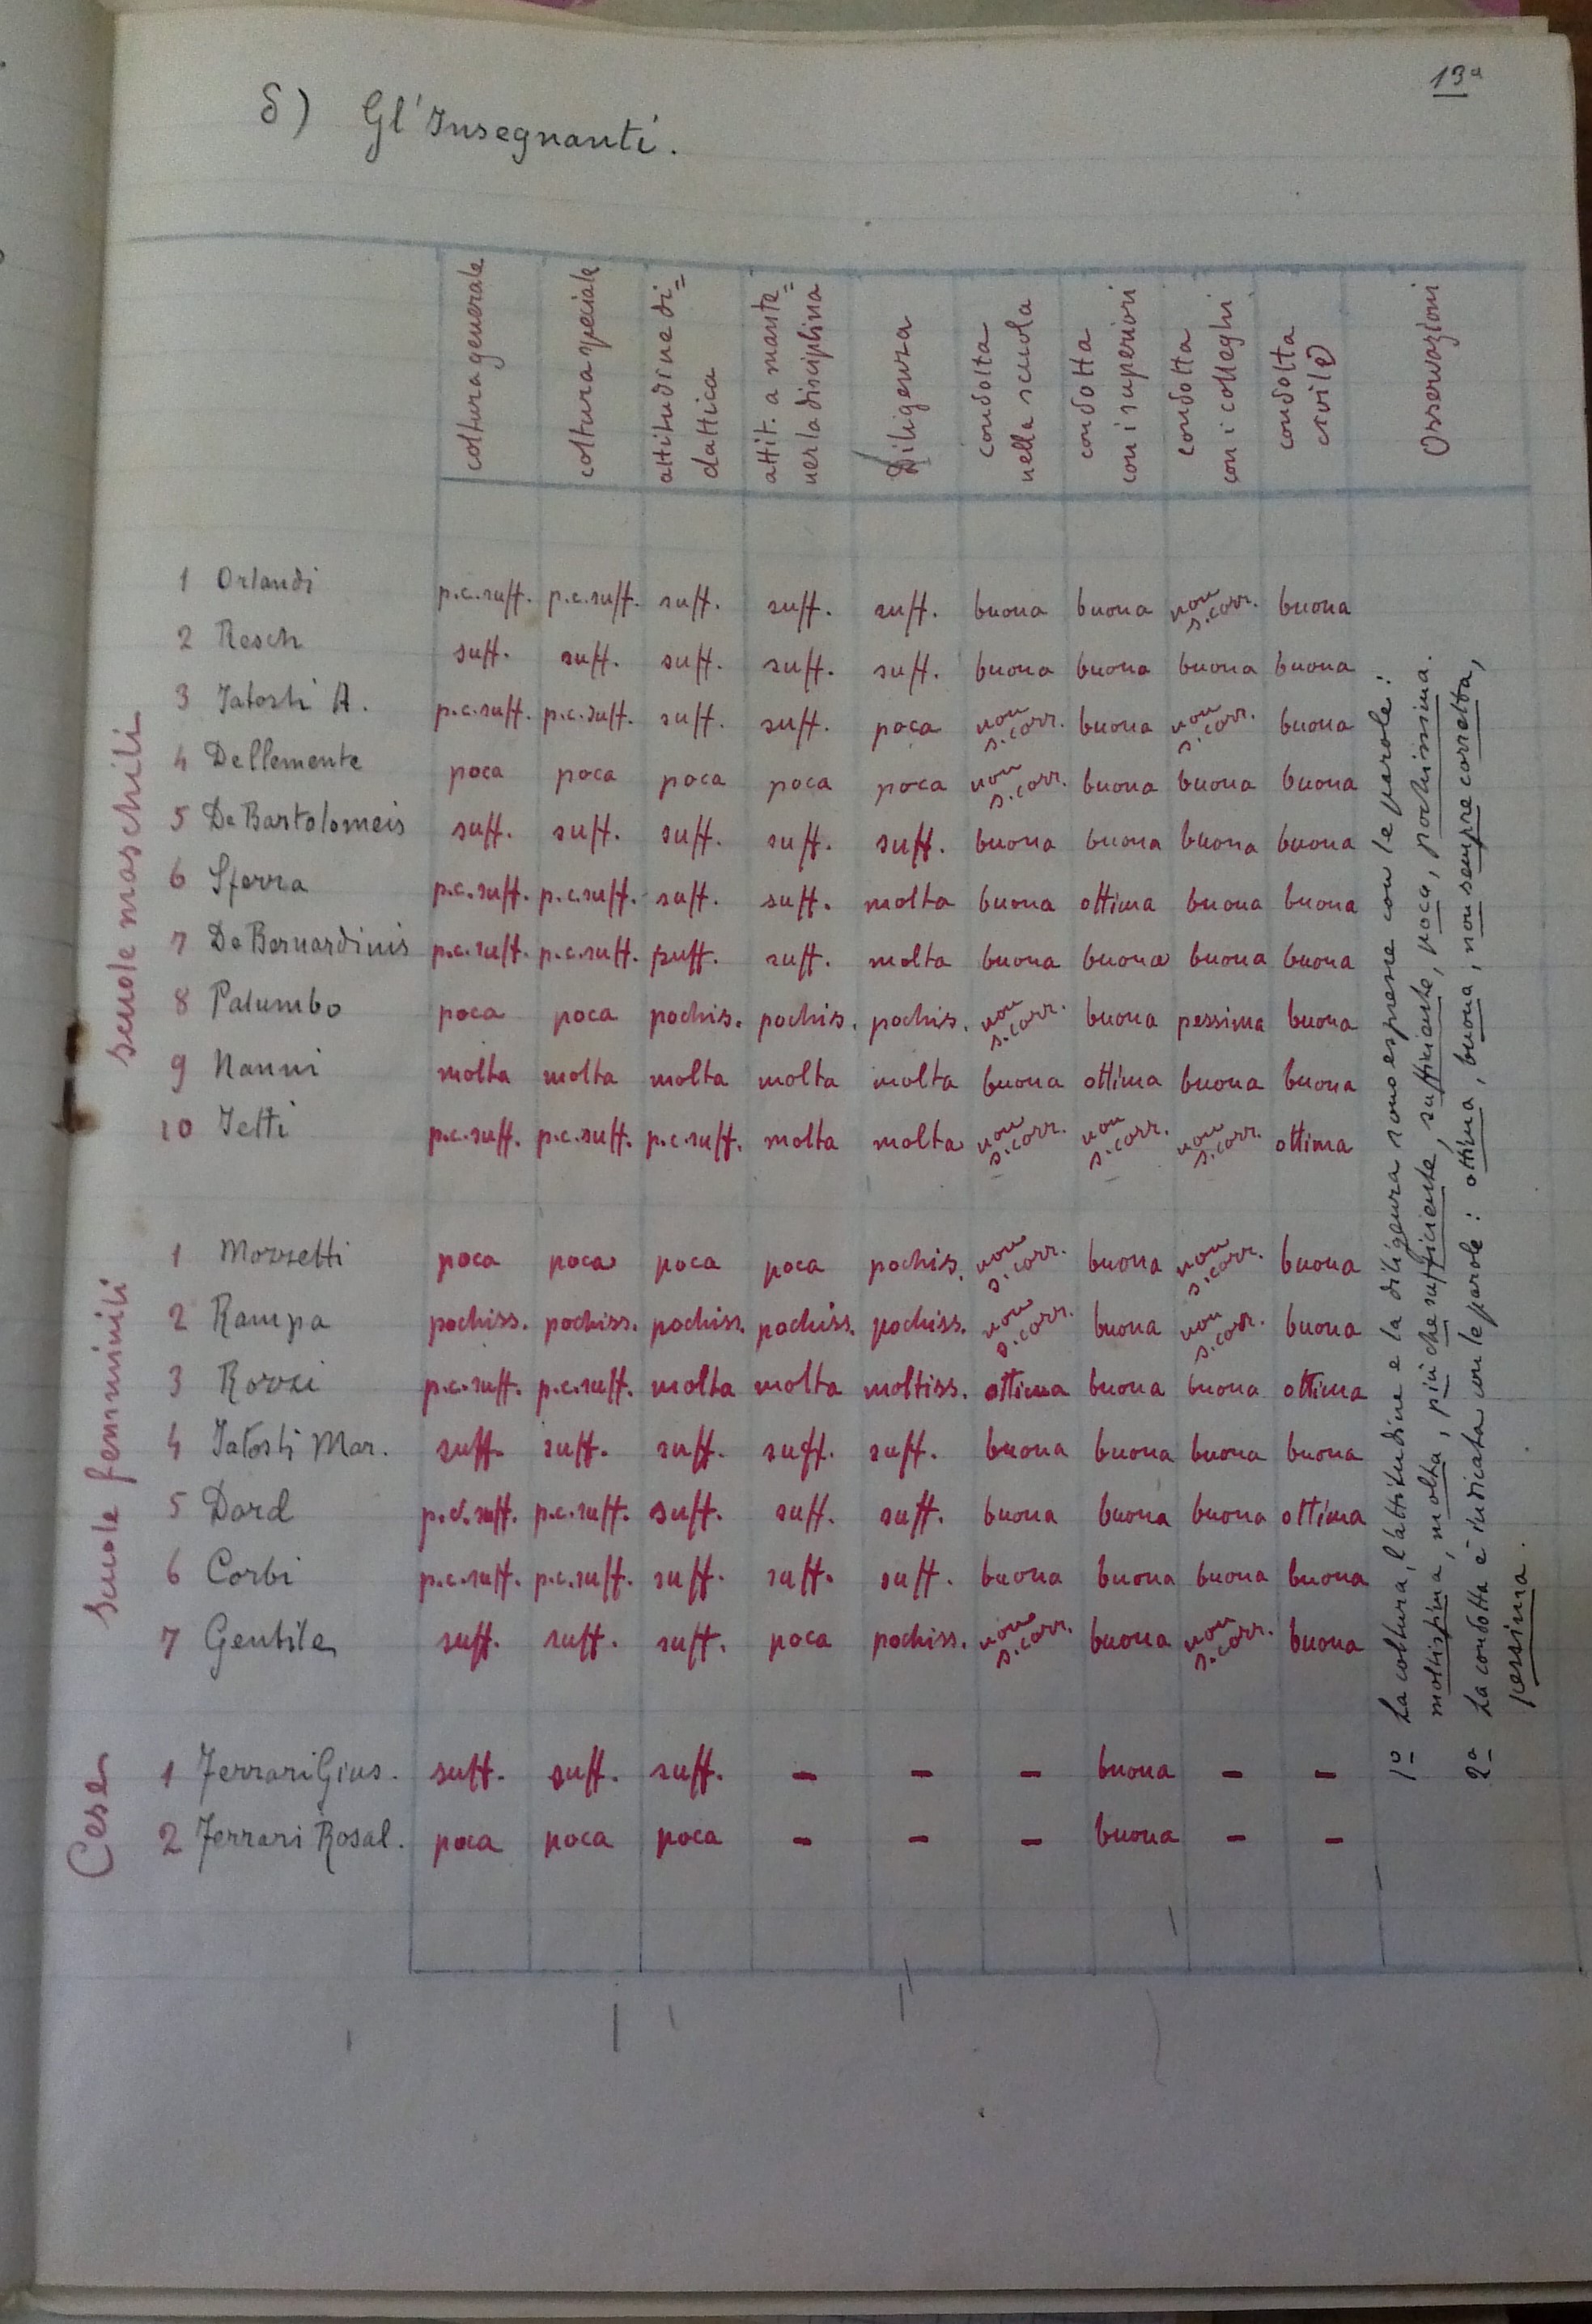 13ª
δ) Gl'Insegnanti.
coltura generale
coltura speciale
attitudine di=
dattica
attit. a mante=
ner la disciplina
diligenza
condotta
nella scuola
condotta
con i superiori
condotta
con i colleghi
condotta
civile
Osservazioni
scuole maschili
1 Orlandi p.c.suff. p.c.suff. suff. suff. suff. buona buona non s.corr. buona
2 Resch suff. suff. suff. suff. suff. buona buona buona buona
3 Iatosti A. p.c.suff. p.c.suff. suff. suff. poca non s.corr. buona non s.corr. buona
4 Dellemente poca poca poca poca poca non s.corr. buona buona buona
5 De Bartolomeis suff. suff. suff. suff. suff. buona buona buona buona
6 Sferra p.c.suff. p.c.suff. suff. suff. molta buona ottima buona buona
7 De Bernardinis p.c.suff. p.c.suff. suff. suff. molta buona buona buona buona
8 Palumbo poca poca pochis. pochis. pochis. non s.corr. buona pessima buona
9 Nanni molta molta molta molta molta buona ottima buona buona
10 Ietti p.c.suff. p.c.suff. p.c.suff. molta molta non s.corr. non s.corr. non s.corr. ottima
scuole femminili
1 Mozzetti poca poca poca poca pochiss. non s.corr. buona non s.corr. buona
2 Rampa pochiss. pochiss. pochiss. pochiss. pochiss. non s.corr. buona non s.corr. buona
3 Rozzi p.c.suff. p.c.suff. molta molta moltiss. ottima buona buona ottima
4 Iatosti Mar. suff. suff. suff. suff. suff. buona buona buona buona
5 Dard p.c.suff. p.c.suff. suff. suff. suff. buona buona buona ottima
6 Corbi p.c.suff. p.c.suff. suff. suff. suff. buona buona buona buona
7 Gentile suff. suff. suff. poca pochiss. non s.corr. buona non s.corr. buona
Cese
1 Ferrari Gius. suff. suff. suff. - - - buona - -
2 Ferrari Rosal. poca poca poca - - - buona - -
1º La coltura, l'attitudine e la diligenza sono espresse con le parole:
moltissima, molta, più che sufficiente, sufficiente, poca, pochissima.
2º La condotta è indicata con le parole: ottima, buona, non sempre corretta,
pessima.